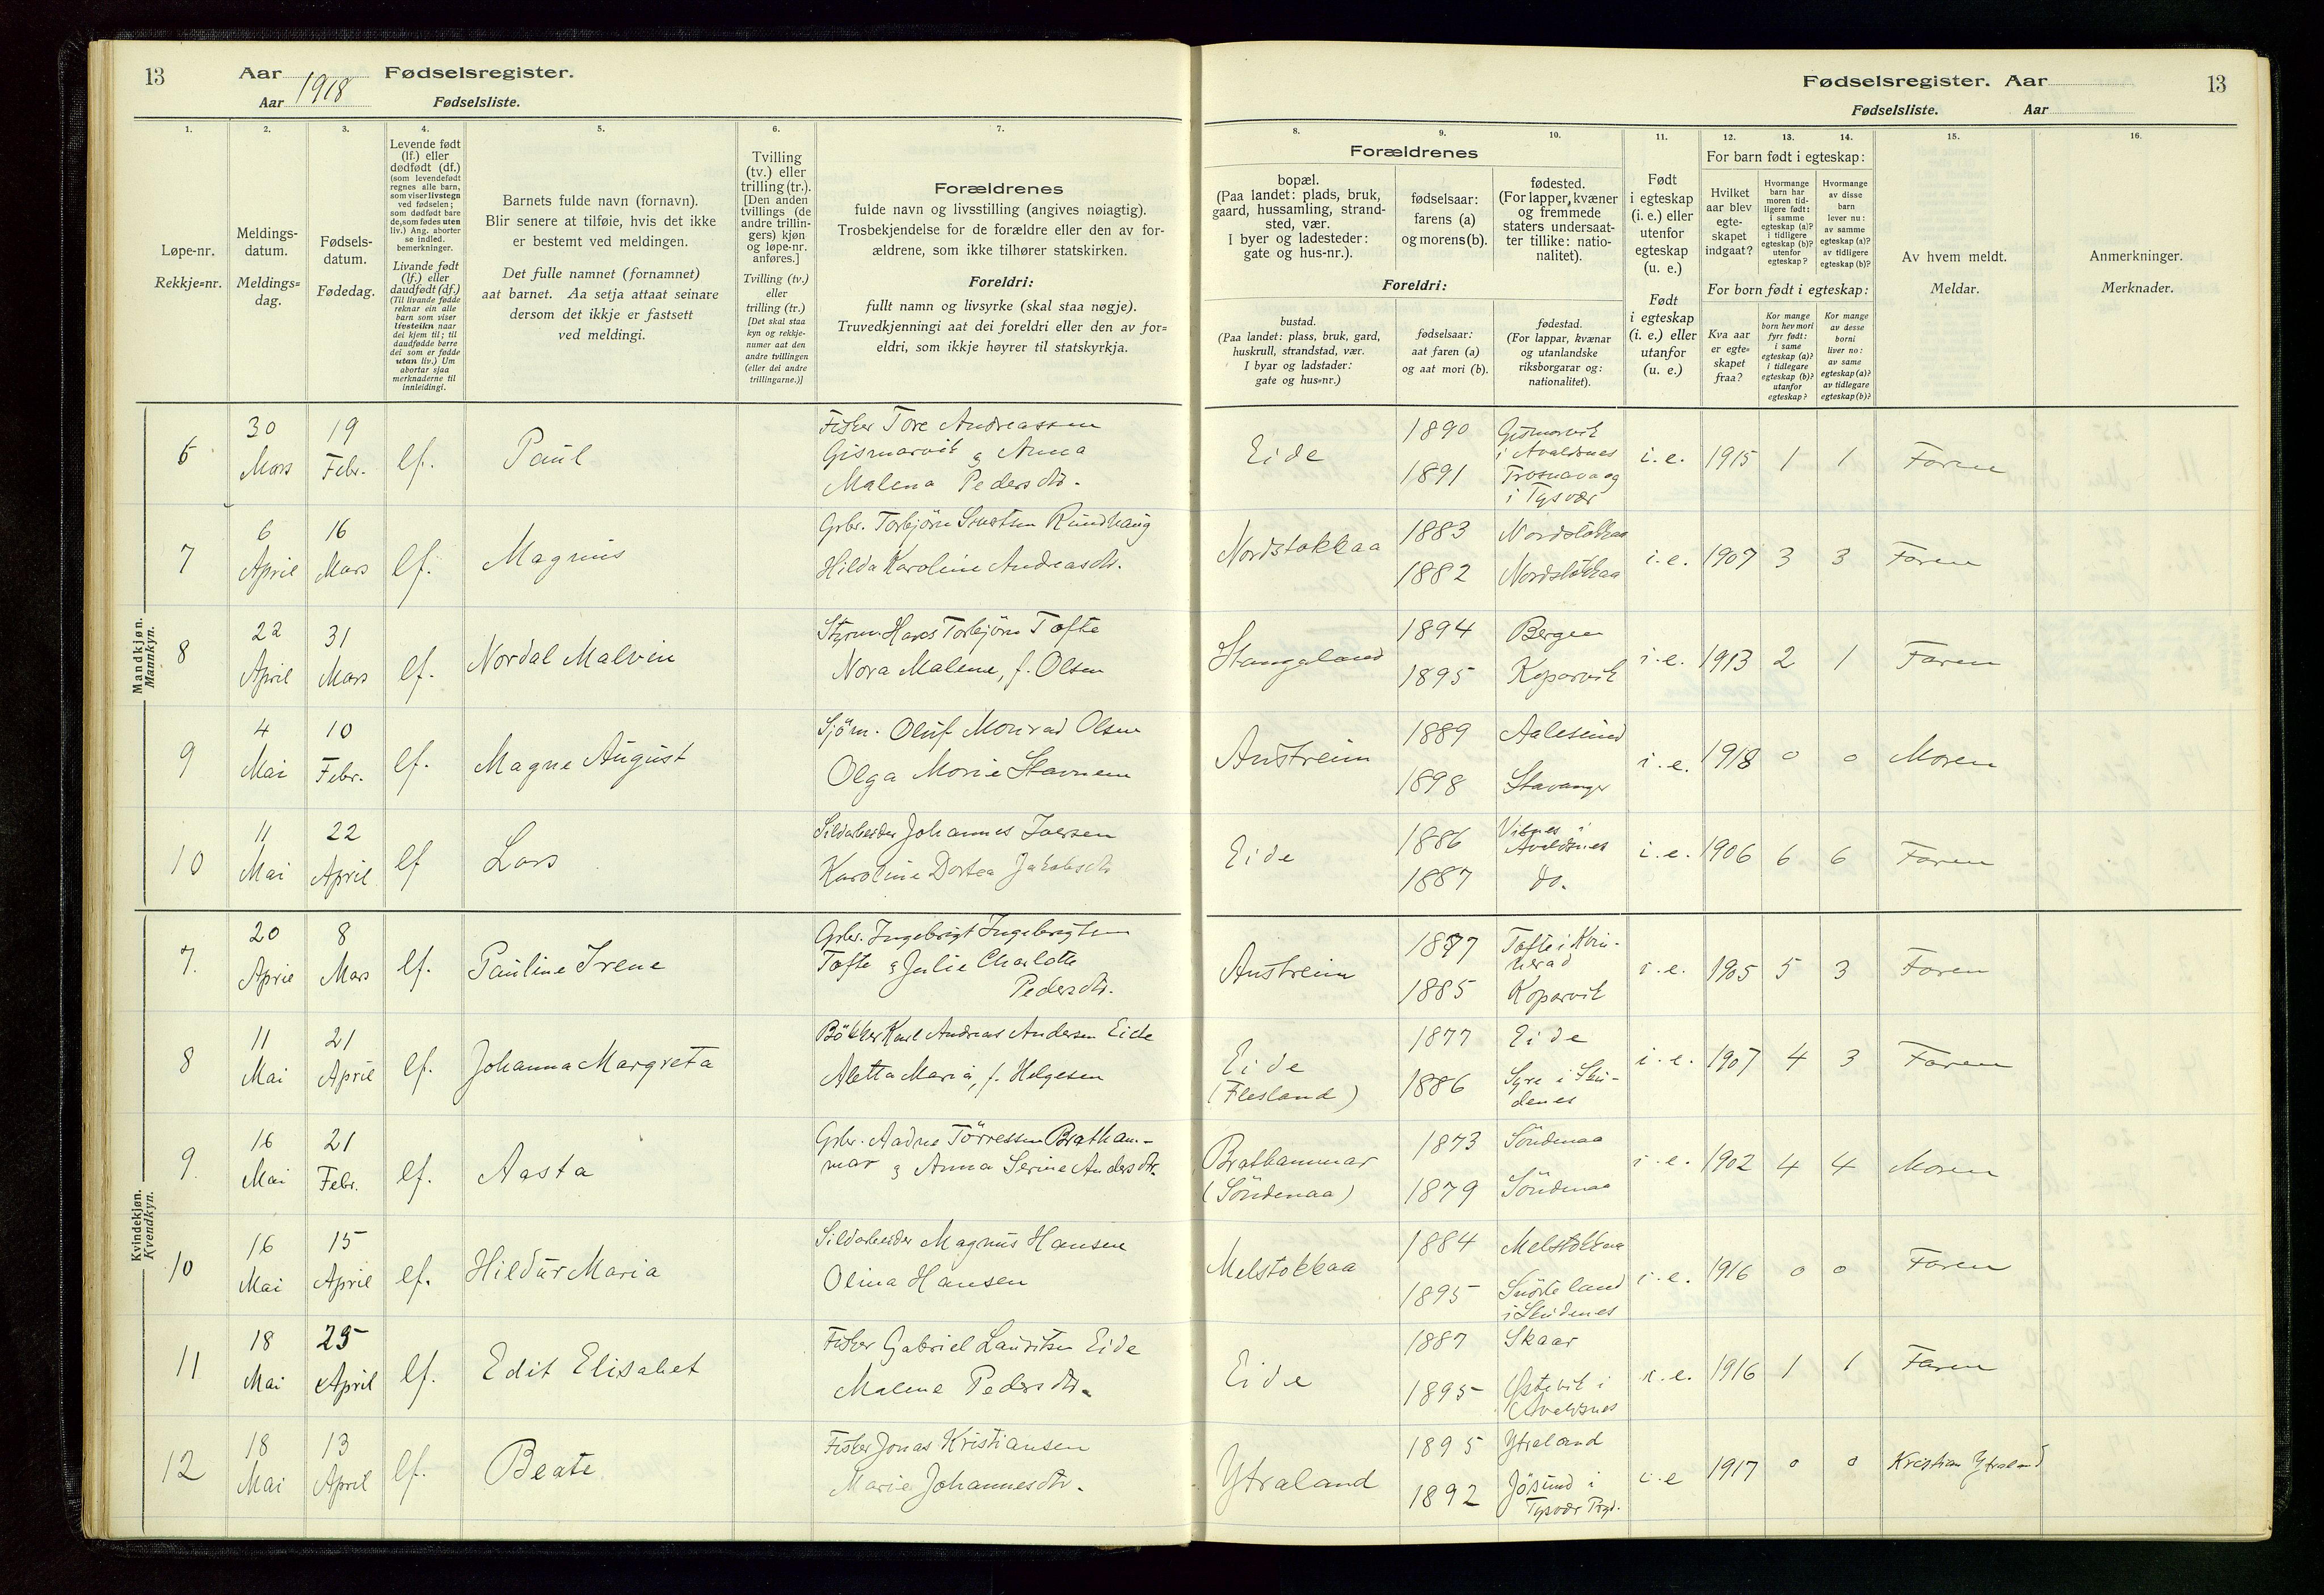 13 Aar 1918 Fødselsregister.
Aar Fødselsliste.
1.
Løpe-nr.
Rekkje=nr.
2.
Meldings-
datum.
Meldings=
dag.
3.
Fødsels-
datum.
Fødedag.
4.
Levende født
(lf.) eller
dødfødt (df.)
(som levendefødt
regnes alle barn,
som viser livstegn
ved fødselen;
som dødfødt bare
de, som fødes uten
liv.) Ang. aborter
se indled.
bemerkninger.
Livande født
(lf.) eller
daudfødt (df.)
(Til livande fødde
reknar ein alle
barn som viser
livsteikn naar
dei kjem til; til
daudfødde berre
dei som er fødde
utan liv.) Um
abortar sjaa
merknaderne til
innleidingi.
5.
Barnets fulde navn (fornavn).
Blir senere at tilføie, hvis det ikke
er bestemt ved meldingen.
Det fulle namnet (fornamnet)
aat barnet. Aa setja attaat seinare
dersom det ikkje er fastsett
ved meldingi.
6.
Tvilling
(tv.) eller
trilling (tr.).
[Den anden
tvillings (de
andre trillin-
gers) kjøn
og løpe-nr.
anføres.]
Tvilling (tv.)
eller
trilling (tr.)
[Det skal staa
kyn og rekkje-
numer aat den
andre tvillingen
(eller dei andre
trillingarne.)]
7.
Forældrenes
fulde navn og livsstilling (angives nøiagtig).
Trosbekjendelse for de forældre eller den av for-
ældrene, som ikke tilhører statskirken.
Foreldri:
fullt namn og livsyrke (skal staa nøgje).
Truvedkjenningi aat dei foreldri eller den av for=
eldri, som ikkje høyrer til statskyrkja.
Mandkjøn.
Mannkyn.
6 30 Mars 19 Febr. lf. Paul
Fisker Tore Andreassen
Gismarvik & Anna
Malena Pedersdtr.
7 6 April 16 Mars lf. Magnus
Grbr. Torbjørn Rundhaug
Hilda Karoline Andreasdtr.
8 22 April 31 Mars lf. Nordal Malvin
Styrm. Hans Torbjørn Tofte
Nora Malene, f. Olsen
9 4 Mai 10 Febr. lf. Magne August
Sjöm. Oluf Monrad Olsen
Olga Marie Stavnem
10 11 Mai 22 April lf Lars
Sildarbeider Johannes Iversen
Karoline Dortea Jakobsdtr
Kvindekjøn.
Kvendkyn.
7. 20 April 8 Mars lf. Pauline Irene
Grbr. Ingebrigt Ingebrigtsen
Tofte & Julie Charlotte
Pedersdtr.
8 11 Mai 21 April lf. Johanna Margreta
Bökker Karl Andreas Andersen Eide
Aletta Maria, f. Helgesen
9. 16 Mai 21 Febr. lf. Aasta
Grbr. Aadne Törressen Bratham-
mar & Anna Serine Andersdtr.
10 16 Mai 15 April lf. Hildur Maria
Sildarbeider Magnus Hansen
Olina Hansen
11 18 Mai 25 April lf. Edit Elisabet
Fisker Gabriel Lauritsen Eide
Malene Pedersdtr.
12 18 Mai 13 April lf. Beate
Fisker Jonas Kristiansen
Marie Johannesdtr.
Fødselsregister. Aar 13
Fødselsliste. Aar
8.
Forældrenes
bopæl.
(Paa landet: plads, bruk,
gaard, hussamling, strand-
sted, vær.
I byer og ladesteder:
gate og hus-nr.).
Foreldri:
bustad.
(Paa landet: plass, bruk, gard,
huskrull, strandstad, vær.
I byar og ladstader:
gate og hus=nr.)
9.
fødselsaar:
farens (a)
og morens (b).
fødselsaar:
aat faren (a)
og aat mori (b).
10.
fødested.
(For lapper, kvæner
og fremmede
staters undersaat-
ter tillike: natio-
nalitet).
fødestad.
(For lappar, kvænar
og utanlandske
riksborgarar og:
nationalitet).
11.
Født
i egteskap
(i. e.) eller
utenfor
egteskap
(u. e.)
Født
i egteskap
(i. e.) eller
utanfor
(u. e.)
12.
For barn født i egteskap:
Hvilket
aar blev
egte-
skapet
indgaat?
For born født i egteskap:
Kva aar
er egte=
skapet
fraa?
13.
Hvormange
barn har
moren tid-
ligere født:
i samme
egteskap (a)?
i tidligere
egteskap (b)?
utenfor
egteskap?
Kor mange
born hev mori
fyrr født:
i same
egteskap (a)?
i tidlegare
egteskap (b)?
utanfor
egteskap?
14.
Hvormange
av disse
barn
lever nu:
av samme
egteskap (a)?
av tidligere
egteskap (b)?
Kor mange
av desse
borni
liver no:
av same
egteskap (a)?
av tidlegare
egteskap (b)?
15.
Av hvem meldt.
Meldar.
16.
Anmerkninger.
Merknader.
Eide 1890 Gismarvik i Avaldsnes i. e. 1915 1 1 Faren
1891 i Tysvær
Nordstokkaa 1883 Nordstokkaa i. e. 1907 3 3 Faren
1882 Nordstokkaa
Stangeland 1894 Bergen i. e. 1913 2 1 Faren
1895 Kopervik
Austreim 1889 Aalesund i. e. 1918 0 0 Moren
1898 Stavanger
Eide 1886 Vibnes i Avaldsnes i. e. 1906 6 6 Faren
1887 do.
Austreim 1877 Tofte i Kvin-
herad i. e. 1905 5 3 Faren
1885 Kopervik
Eide 1877 Eide i. e. 1907 4 3 Faren
(Flesland) 1886 Syre i Sku-
denes
Brathammar 1873 Söndenaa i. e. 1902 4 4 Moren
(Söndenaa) 1879 Söndenaa
Melstokkaa 1884 Melstokkaa i. e. 1916 0 0 Faren
1895 Snörteland
i Skudenes
Eide 1887 Skaar i. e. 1916 1 1 Faren
1895 Østevik i
Avaldsnes
Ytraland 1895 Ytraland i. e 1917 0 0 Kristian Ytraland
1892 Jösund i
Tysvær Prgd.